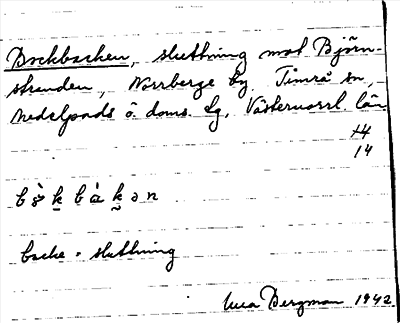 Bockbacken, sluttning mot Björn-
stranden, Norrberge by Timrå sn,
Medelpads ö. doms. sg, Västernorrl. län.
14
b ò̤ k b à k ə n
backe - sluttning
Bergman 1942